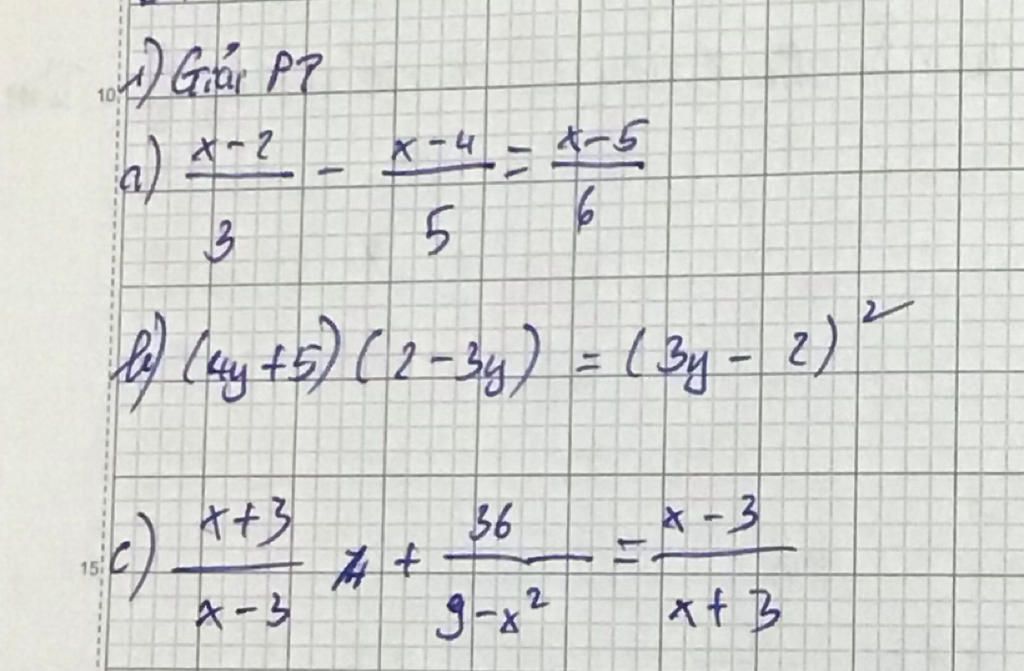 10
1) Giải PT
a) (x-2)/3 - (x-4)/5 = (x-5)/6
b) (4y+5)(2-3y) = (3y-2)²
15
c) (x+3)/(x-3) + 36/(9-x²) = (x-3)/(x+3)